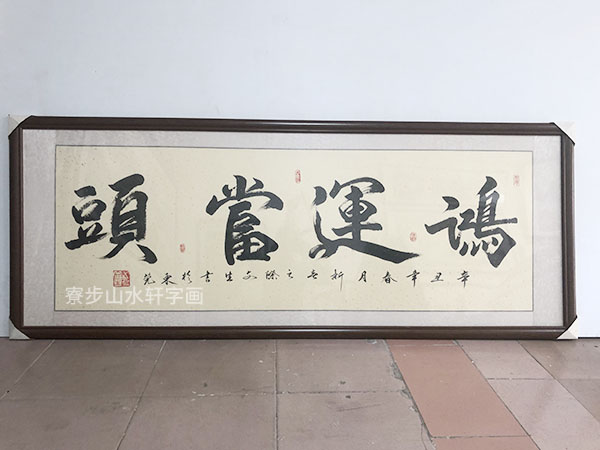 鴻運當頭
辛丑年春月新之際文生書於東莞
寮步山水轩字画